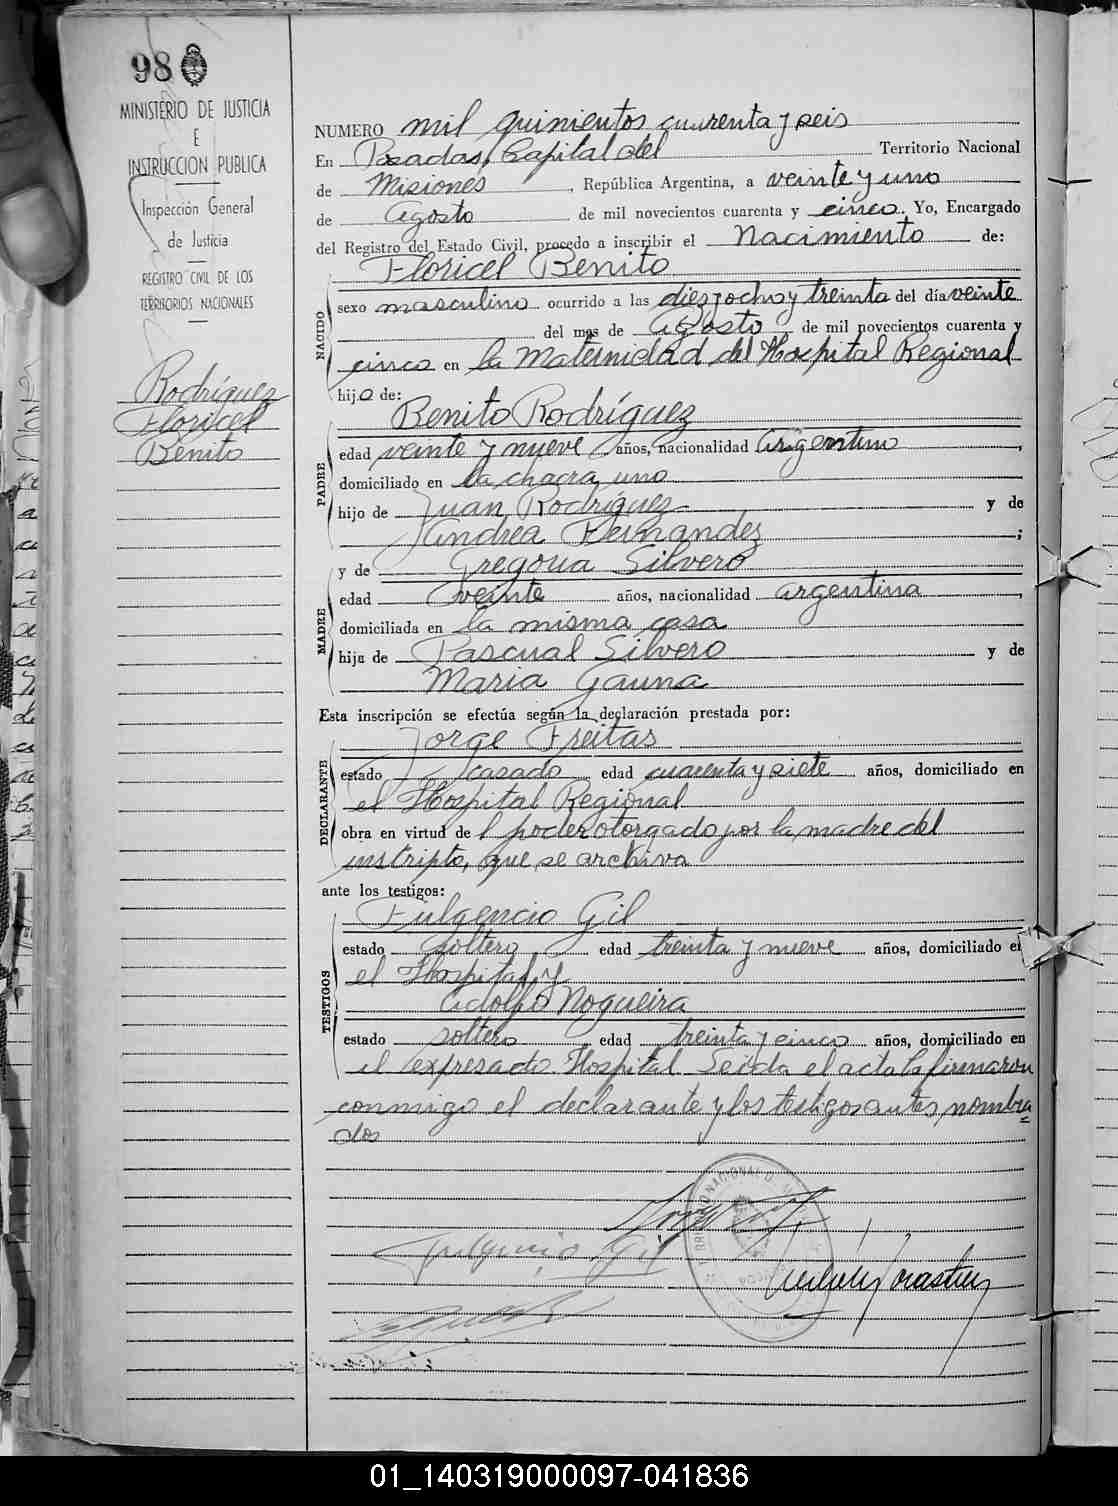 98
MINISTERIO DE JUSTICIA
E
INSTRUCCION PUBLICA
Inspección General
de Justicia
REGISTRO CIVIL DE LOS
TERRITORIOS NACIONALES
Rodríguez
Floricel
Benito
NUMERO mil quinientos cuarenta y seis
En Posadas, Capital del Territorio Nacional
de Misiones, República Argentina, a veinte y uno
de Agosto de mil novecientos cuarenta y cinco. Yo, Encargado
del Registro del Estado Civil, procedo a inscribir el Nacimiento de:
Floricel Benito
NACIDO
sexo masculino ocurrido a las diez y ocho y treinta del día veinte
del mes de Agosto de mil novecientos cuarenta y
cinco en la Maternidad del Hospital Regional
hijo de:
Benito Rodríguez
PADRE
edad veinte y nueve años, nacionalidad argentino,
domiciliado en la chacra uno
hijo de Juan Rodríguez y de
Andrea Fernandez;
y de Gregoria Silvero
MADRE
edad veinte años, nacionalidad argentina,
domiciliada en la misma casa
hija de Pascual Silvero y de
Maria Gauna
Esta inscripción se efectúa según la declaración prestada por:
Jorge Freitas
DECLARANTE
estado casado edad cuarenta y siete años, domiciliado en
el Hospital Regional
obra en virtud de l poder otorgado por la madre del
inscripto, que se archiva
ante los testigos:
Fulgencio Gil
TESTIGOS
estado soltero edad treinta y nueve años, domiciliado en
el Hospital y
Adolfo Nogueira
estado soltero edad treinta y cinco años, domiciliado en
el expresado Hospital Leída el acta la firmaron
conmigo el declarante y los testigos antes nombra
dos
Fulgencio Gil
01_140319000097-041836